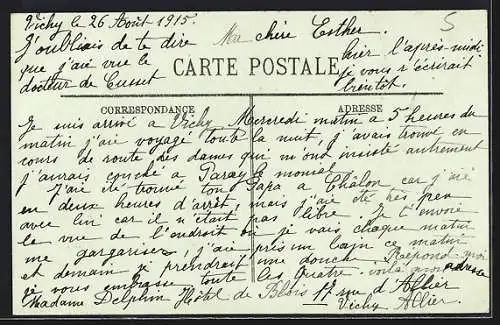 Vichy le 26 Août 1915.
Ma chère Esther
J'oubliais de te dire
que j'aie vue le
docteur de Cusset
hier l'après-midi
je vous s'écrirait
bientôt.
5
CARTE POSTALE
CORRESPONDANCE
ADRESSE
Je suis arrivé a Vichy Mercredi matin a 5 heures du
matin j'aie voyagé toute la nuit, j'avais trouvé en
cours de route des dames qui m'ont insisté autrement
j'aurais couché a Paray le monial
J'aie été trouvé ton Papa a Châlon car j'aie
en deux heures d'arrêt, mais j'aie été très peu
avec lui car il n'était pas libre. Je t'envoie
la vue de l'endroit où je vais chaque matin
me gargariser, j'aie pris un bain ce matin
et demain je prendrait une douche. Repond-moi
je vous embrasse toute les quatre. voilà mon adresse
Madame Delphin Hôtel de Blois 17 rue d'Allier
Vichy Allier.